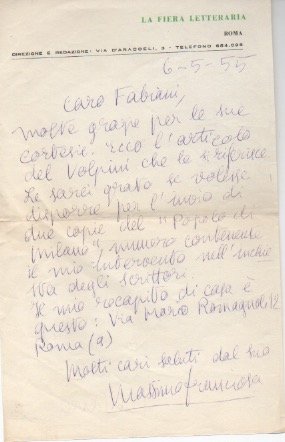 LA FIERA LETTERARIA
ROMA
DIREZIONE E REDAZIONE: VIA D'ARACOELI, 3 - TELEFONO 684.098
6-5-55
Caro Fabiani,
molte grazie per le sue
cortesie. Ecco l'articolo
del Volpini che la riferisce
Le sarei grato se volesse
disporre per l'invio di
due copie del "Popolo di
Milano", numero contenente
il mio intervento nell'inchie
sta degli scrittori.
Il mio recapito di casa è
questo: Via Mario Romagnoli 12
Roma (9)
Molti cari saluti dal suo
Massimo Franciosa